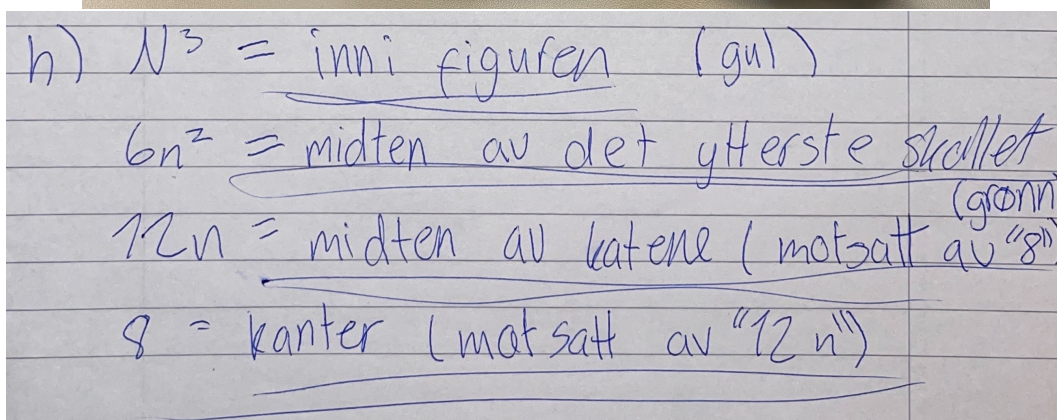 h) N³ = inni figuren (gul)
6n² = midten av det ytterste skallet
(grønn
12n = midten av katene (motsatt av "8")
8 = kanter (motsatt av "12n")